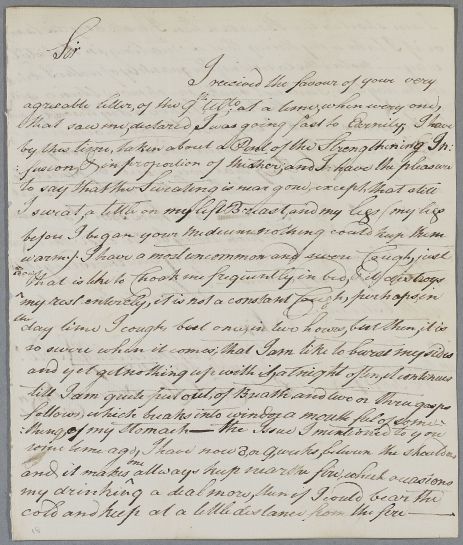 Sir
I received the favour of your very
agreable letter, of the 9th Ulto: at a time, when every one,
that saw me, declared, I was going fast to Eternity, I have
by this time, taken about a Pint of the Strengthening In-
:fusion, & in proportion of the other, and I have the pleasure
to say that the Sweating is near gone, except, that still
I sweat, a little on my left Breast, and my legs (my legs
before I began your Medicines nothing could keep them
warm) I have a most uncommon and severe Cough, just
that is like to choak me frequently in bed, & it destroys
my rest entirely, it is not a constant Cough, perhaps, in
the
day time I cough but once, in two hours, but then, it is
so severe when it comes, that I am like to burst my sides
and yet get nothing up with it, at night often, it continues
till I am quite put out, of Breath and two or three gasps
follows, which breaks into wind, or a mouthful of some-
:thing, of my Stomach — the Issue I mentioned to you
some time ago, I have now 3 or 4 weeks, between the Shoulders
and, it makes me allways keep near the fire, which occasions
my drinking a deal more, than if I could bear the
cold and keep at a little distance from the fire —